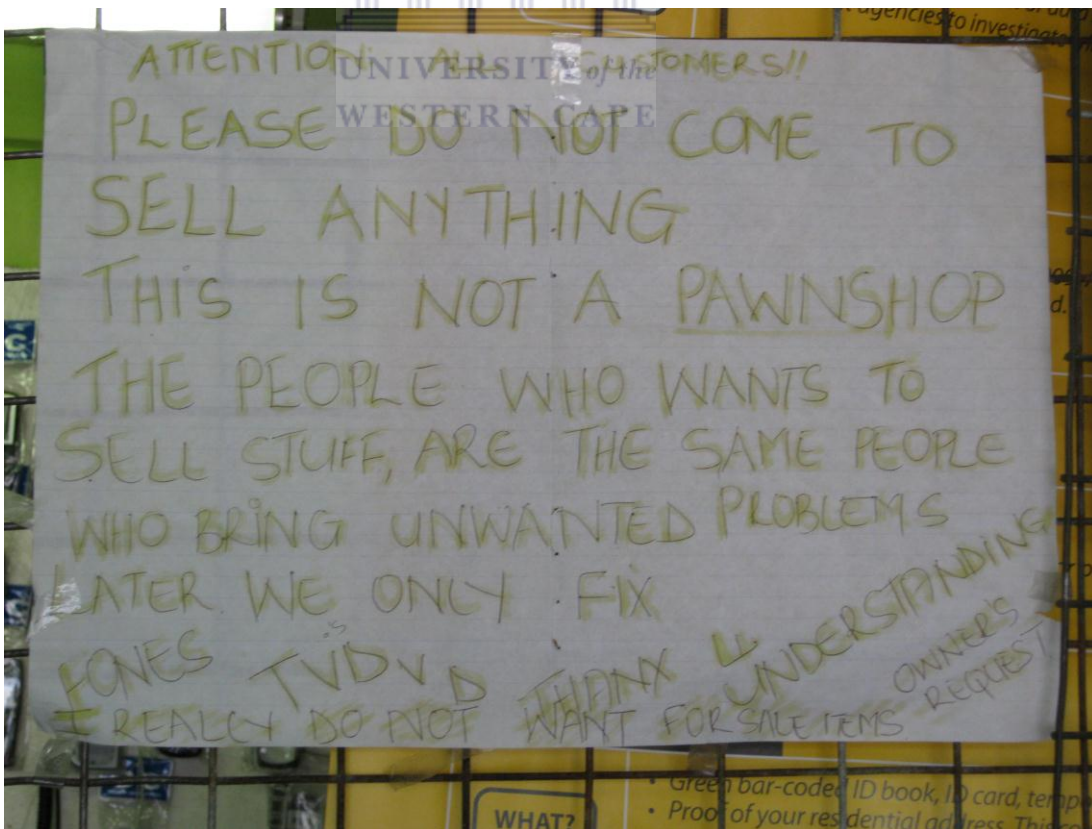 agencies to investigate
ATTENTION: ALL CUSTOMERS!!
UNIVERSITY of the
WESTERN CAPE
PLEASE DO NOT COME TO
SELL ANYTHING
THIS IS NOT A PAWNSHOP
THE PEOPLE WHO WANTS TO
SELL STUFF, ARE THE SAME PEOPLE
WHO BRING UNWANTED PROBLEMS
LATER. WE ONLY FIX
FONES TV'S DVD THANX 4 UNDERSTANDING
I REALLY DO NOT WANT FOR SALE ITEMS
OWNER'S
REQUEST
WHAT?
• Green bar-coded ID book, ID card,
• Proof of your residential address.